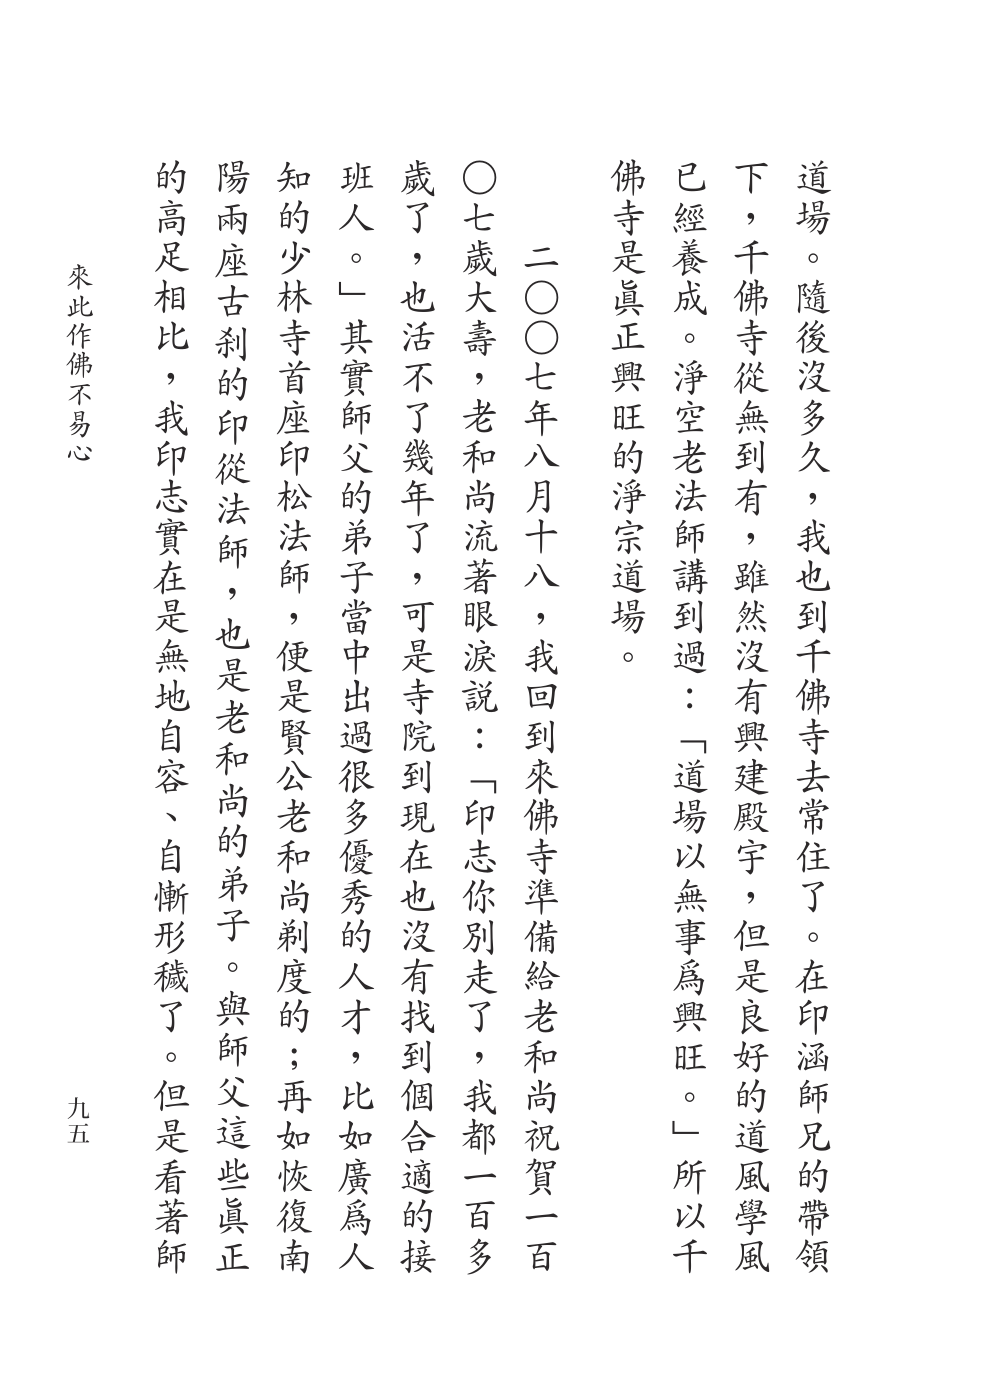 道場。隨後沒多久，我也到千佛寺去常住了。在印涵師兄的帶領
下，千佛寺從無到有，雖然沒有興建殿宇，但是良好的道風學風
已經養成。淨空老法師講到過：「道場以無事爲興旺。」所以千
佛寺是眞正興旺的淨宗道場。
二〇〇七年八月十八，我回到來佛寺準備給老和尚祝賀一百
〇七歲大壽，老和尚流著眼淚説：「印志你別走了，我都一百多
歲了，也活不了幾年了，可是寺院到現在也沒有找到個合適的接
班人。」其實師父的弟子當中出過很多優秀的人才，比如廣爲人
知的少林寺首座印松法師，便是賢公老和尚剃度的；再如恢復南
陽兩座古刹的印從法師，也是老和尚的弟子。與師父這些眞正
的高足相比，我印志實在是無地自容、自慚形穢了。但是看著師
來此作佛不易心
九五